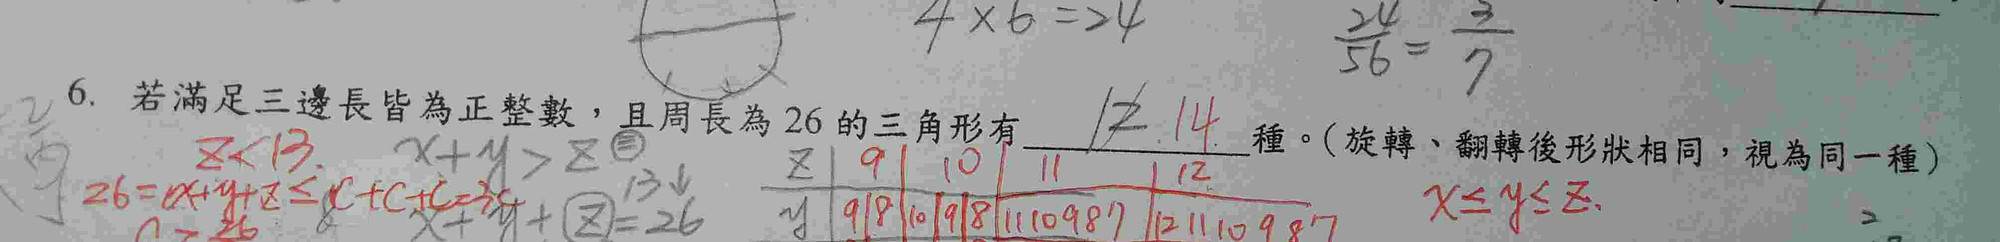 4×6=24
24/56=3/7
6. 若滿足三邊長皆為正整數，且周長為 26 的三角形有 12 14 種。（旋轉、翻轉後形狀相同，視為同一種）
z<13. x+y>z z 9 10 11 12
26=x+y+z≤c+c+c=3c 13↓ x≤y≤z.
x+y+z=26 y 9 8 10 9 8 11 10 9 8 7 12 11 10 9 8 7